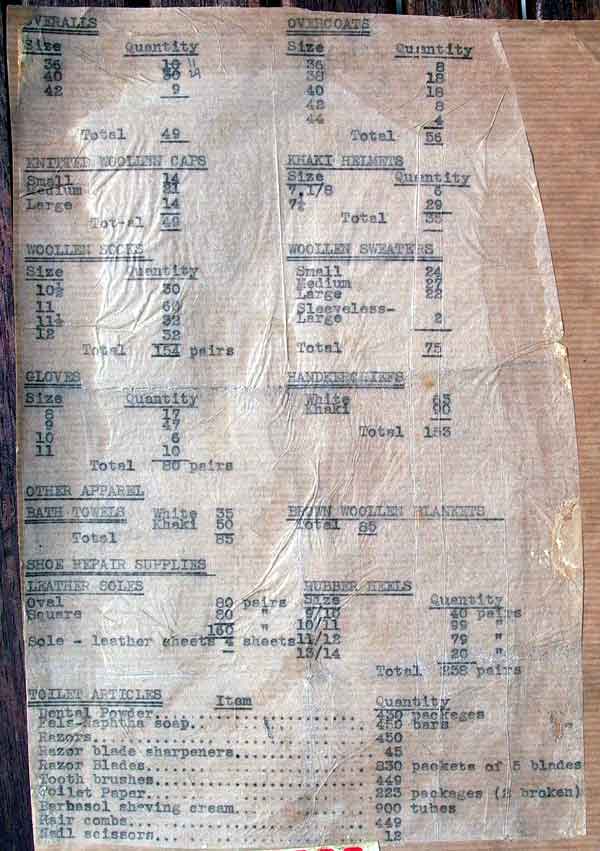 OVERALLS
Size Quantity
36 10 11
40 30
42 9
Total 49
KNITTED WOOLLEN CAPS
Small 14
Medium 21
Large 14
Total 49
WOOLLEN SOCKS
Size Quantity
10½ 30
11 60
11½ 32
12 32
Total 154 pairs
GLOVES
Size Quantity
8 17
9 47
10 6
11 10
Total 80 pairs
OVERCOATS
Size Quantity
36 8
38 18
40 18
42 8
44 4
Total 56
KHAKI HELMETS
Size Quantity
7.1/8 6
29
Total 35
WOOLLEN SWEATERS
Small 24
Medium 27
Large 22
Sleeveless-
Large 2
Total 75
HANDKERCHIEFS
White 63
Khaki 90
Total 153
OTHER APPAREL
BATH TOWELS White 35
Khaki 50
Total 85
BROWN WOOLLEN BLANKETS
Total 85
SHOE REPAIR SUPPLIES
LEATHER SOLES
Oval 80 pairs
Square 80 "
160 "
Sole - leather sheets 4 sheets
RUBBER HEELS
Size Quantity
9/10 40 pairs
10/11 99 "
11/12 79 "
13/14 20 "
Total 238 pairs
TOILET ARTICLES Item Quantity
Dental Powder.......................... packages
Fels-Naphtha soap...................... 450 bars
Razors................................. 450
Razor blade sharpeners................. 45
Razor Blades........................... 830 packets of 5 blades
Tooth brushes.......................... 449
Toilet Paper........................... 223 packages (2 broken)
Barbasol shaving cream................. 900 tubes
Hair combs............................. 449
Nail scissors.......................... 12